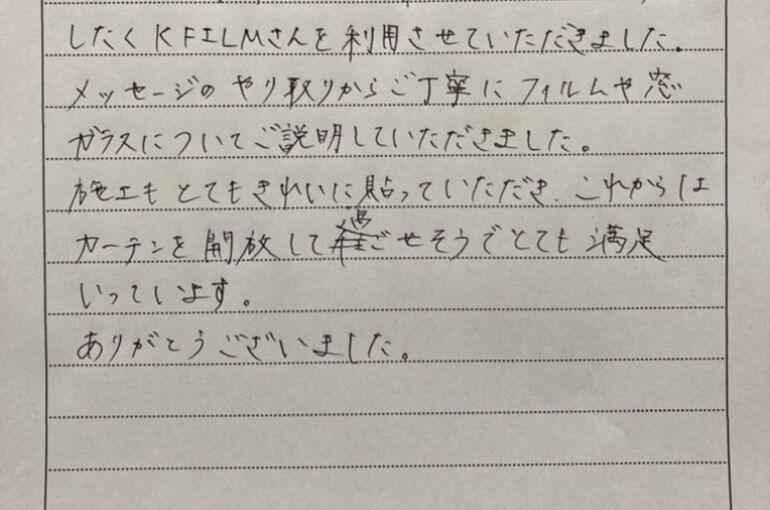 したくKFILMさんを利用させていただきました。
メッセージのやり取りからご丁寧にフィルムや窓
ガラスについてご説明していただきました。
施工もとてもきれいに貼っていただき、これからは
カーテンを開放して過ごせそうでとても満足
いっています。
ありがとうございました。